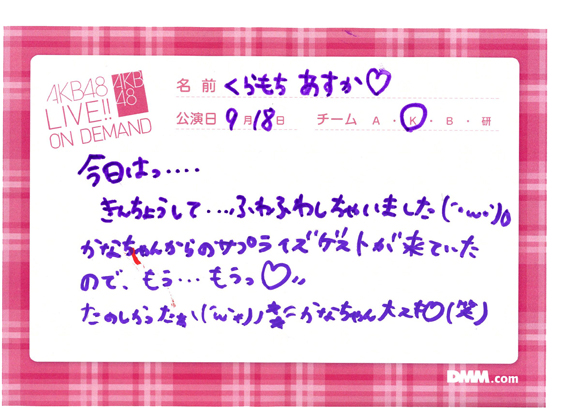 AKB48
LIVE!!
ON DEMAND
AKB
48
名前 くらもち あすか♡
公演日 9月18日 チーム A・K・B・研
今日はっ・・・・
きんちょうして・・・ふわふわしちゃいました(´・ω・`)
かなちゃんからのサプライズゲストが来ていた
ので、もう…もうっ♡
たのしかっただ
かなちゃん大スキ♡(笑)
DMM.com